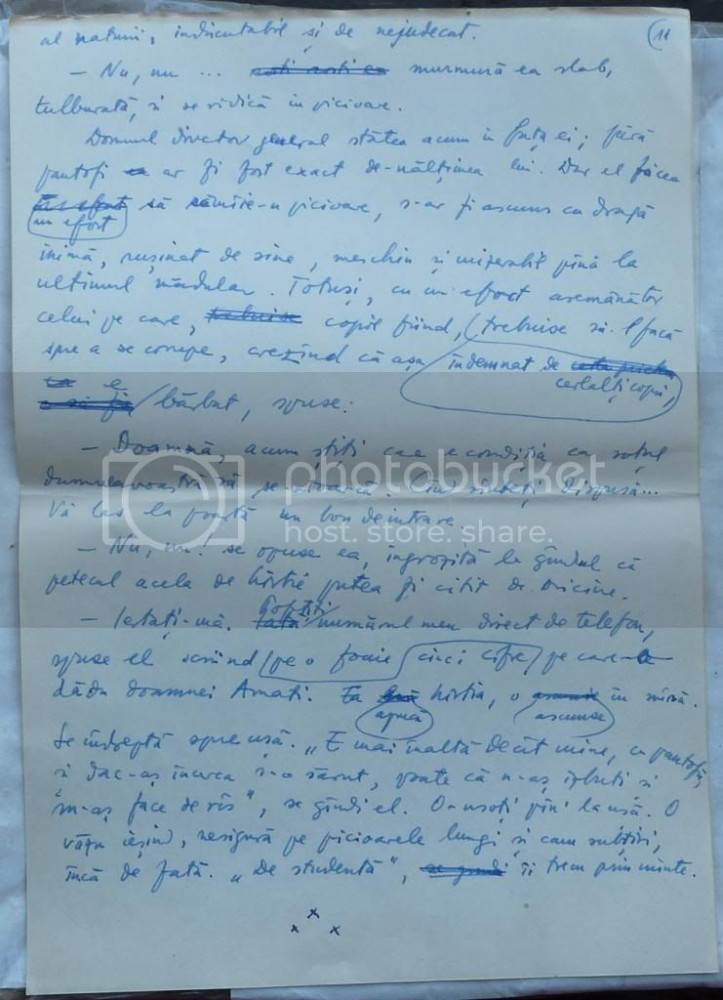 11
al naturii, indiscutabil și de nejudecat.
– Nu, nu ... murmură ea slab,
tulburată, și se ridică în picioare.
Domnul director general stătea acum în fața ei; fără
pantofi ar fi fost exact de-nălțimea lui. Dar el făcea
un efort să rămîie-n picioare, s-ar fi ascuns cu dragă
inimă, rușinat de sine, meschin și mizerabil pînă la
ultimul mădular. Totuși, cu un efort asemănător
celui pe care, copil fiind, trebuise să-l facă
spre a se corupe, crezînd că așa îndemnat de
ceilalți copii,
e bărbat, spuse:
– Doamnă, acum știți care e condiția ca soțul
dumneavoastră să se întoarcă. Cînd sînteți dispusă...
Vă las la poartă un bon de intrare.
– Nu, nu! se opuse ea, îngrozită la gîndul că
petecul acela de hîrtie putea fi citit de oricine.
– Iertați-mă. Poftiți numărul meu direct de telefon,
spuse el scriind pe o foaie cinci cifre pe care
dădu doamnei Amati. Ea apucă hîrtia, o ascunse în mînă.
Se îndreptă spre ușă. „E mai înaltă decît mine, cu pantofi,
și dac-aș încerca s-o sărut, poate că n-aș izbuti și
m-aș face de rîs”, se gîndi el. O-nsoți pîn' la ușă. O
văzu ieșind, nesigură pe picioarele lungi și cam subțiri,
încă de fată. „De studentă”, îi trecu prin minte.
x x x
photobucket
host. store. share.